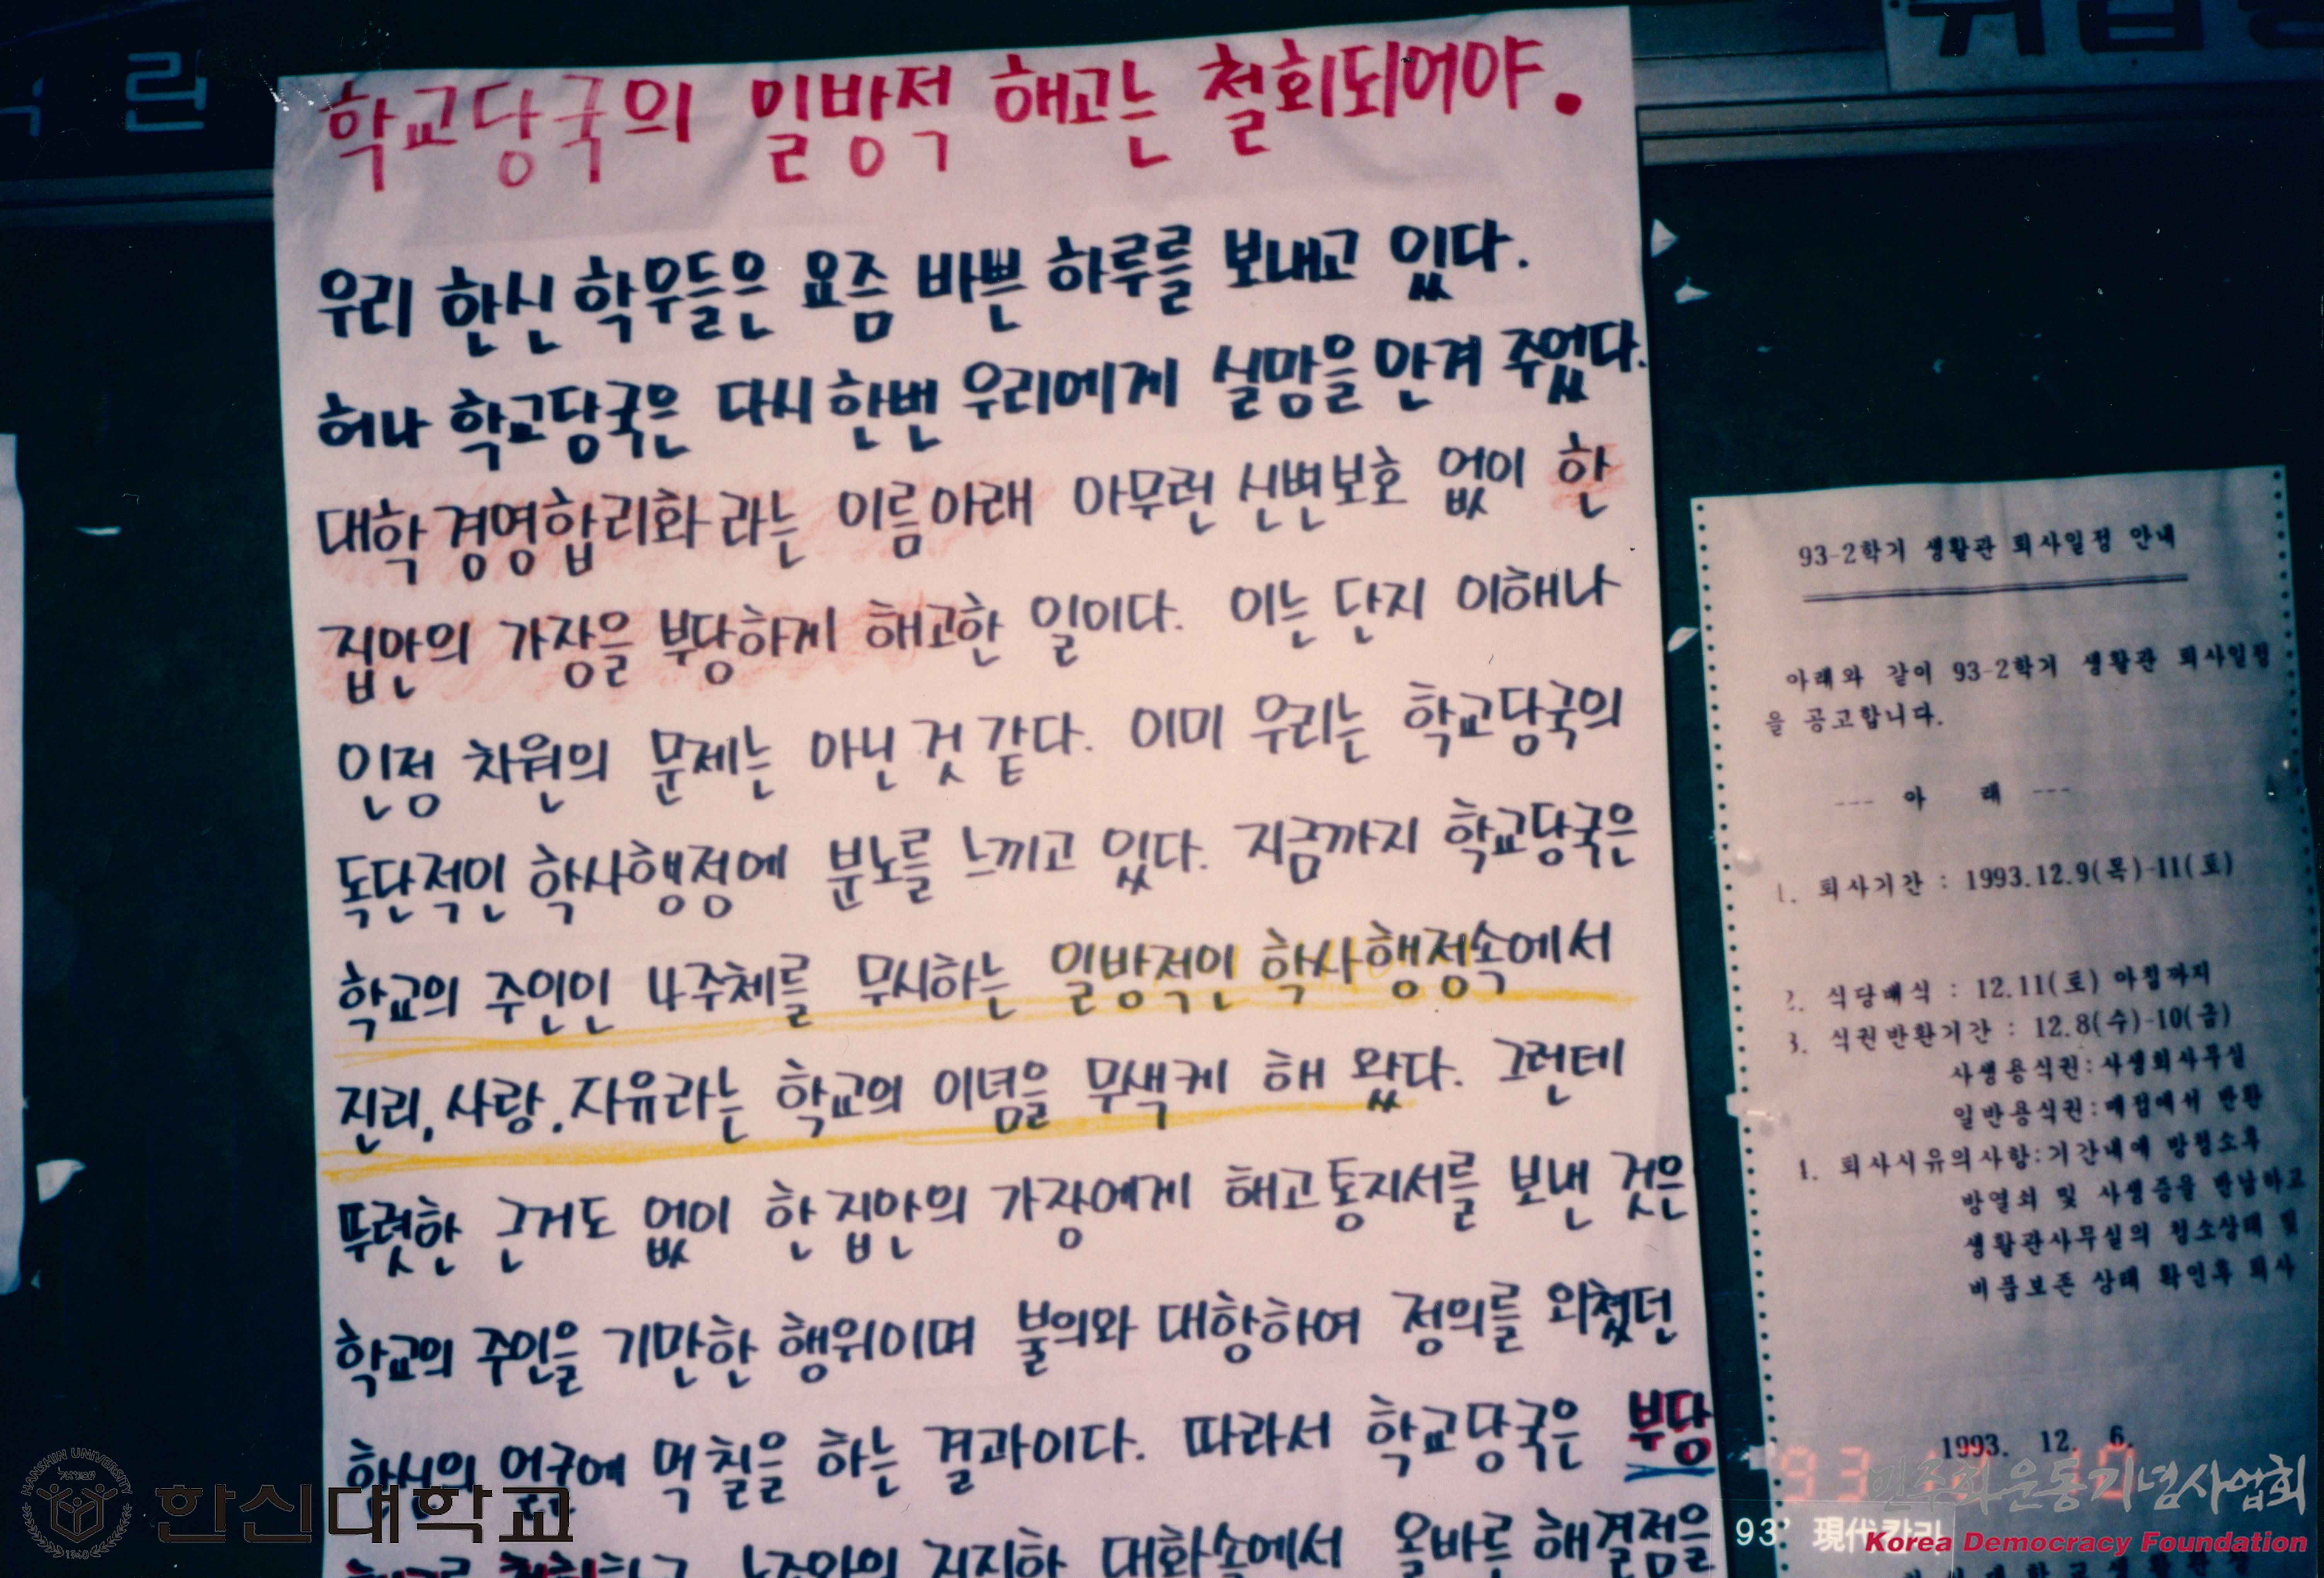 학교당국의 일방적 해고는 철회되어야.
우리 한신 학우들은 요즘 바쁜 하루를 보내고 있다.
허나 학교당국은 다시한번 우리에게 실망을 안겨 주었다.
대학경영합리화라는 이름아래 아무런 신변보호 없이 한
집안의 가장을 부당하게 해고한 일이다. 이는 단지 이해나
인정 차원의 문제는 아닌 것 같다. 이미 우리는 학교당국의
독단적인 학사행정에 분노를 느끼고 있다. 지금까지 학교당국은
학교의 주인인 4주체를 무시하는 일방적인 학사행정속에서
진리, 사랑, 자유라는 학교의 이념을 무색케 해 왔다. 그런데
뚜렷한 근거도 없이 한 집안의 가장에게 해고통지서를 보낸 것은
학교의 주인을 기만한 행위이며 불의와 대항하여 정의를 외쳤던
한신의 얼굴에 먹칠을 하는 결과이다. 따라서 학교당국은 부당
노조와의 진지한 대화속에서 올바른 해결점을
란
취업
93-2학기 생활관 퇴사일정 안내
아래와 같이 93-2학기 생활관 퇴사일정
을 공고합니다.
--- 아 래 ---
1. 퇴사기간 : 1993.12.9(목)-11(토)
2. 식당배식 : 12.11(토) 아침까지
3. 식권반환기간 : 12.8(수)-10(금)
사생용식권:사생회사무실
일반용식권:매점에서 반환
4. 퇴사시유의사항:기간내에 방청소후
방열쇠 및 사생증을 반납하고
생활관사무실의 청소상태 및
비품보존 상태 확인후 퇴사
1993. 12. 6.
93' 現代칼라
한신대학교
HANSHIN UNIVERSITY
1940
민주화운동기념사업회
Korea Democracy Foundation